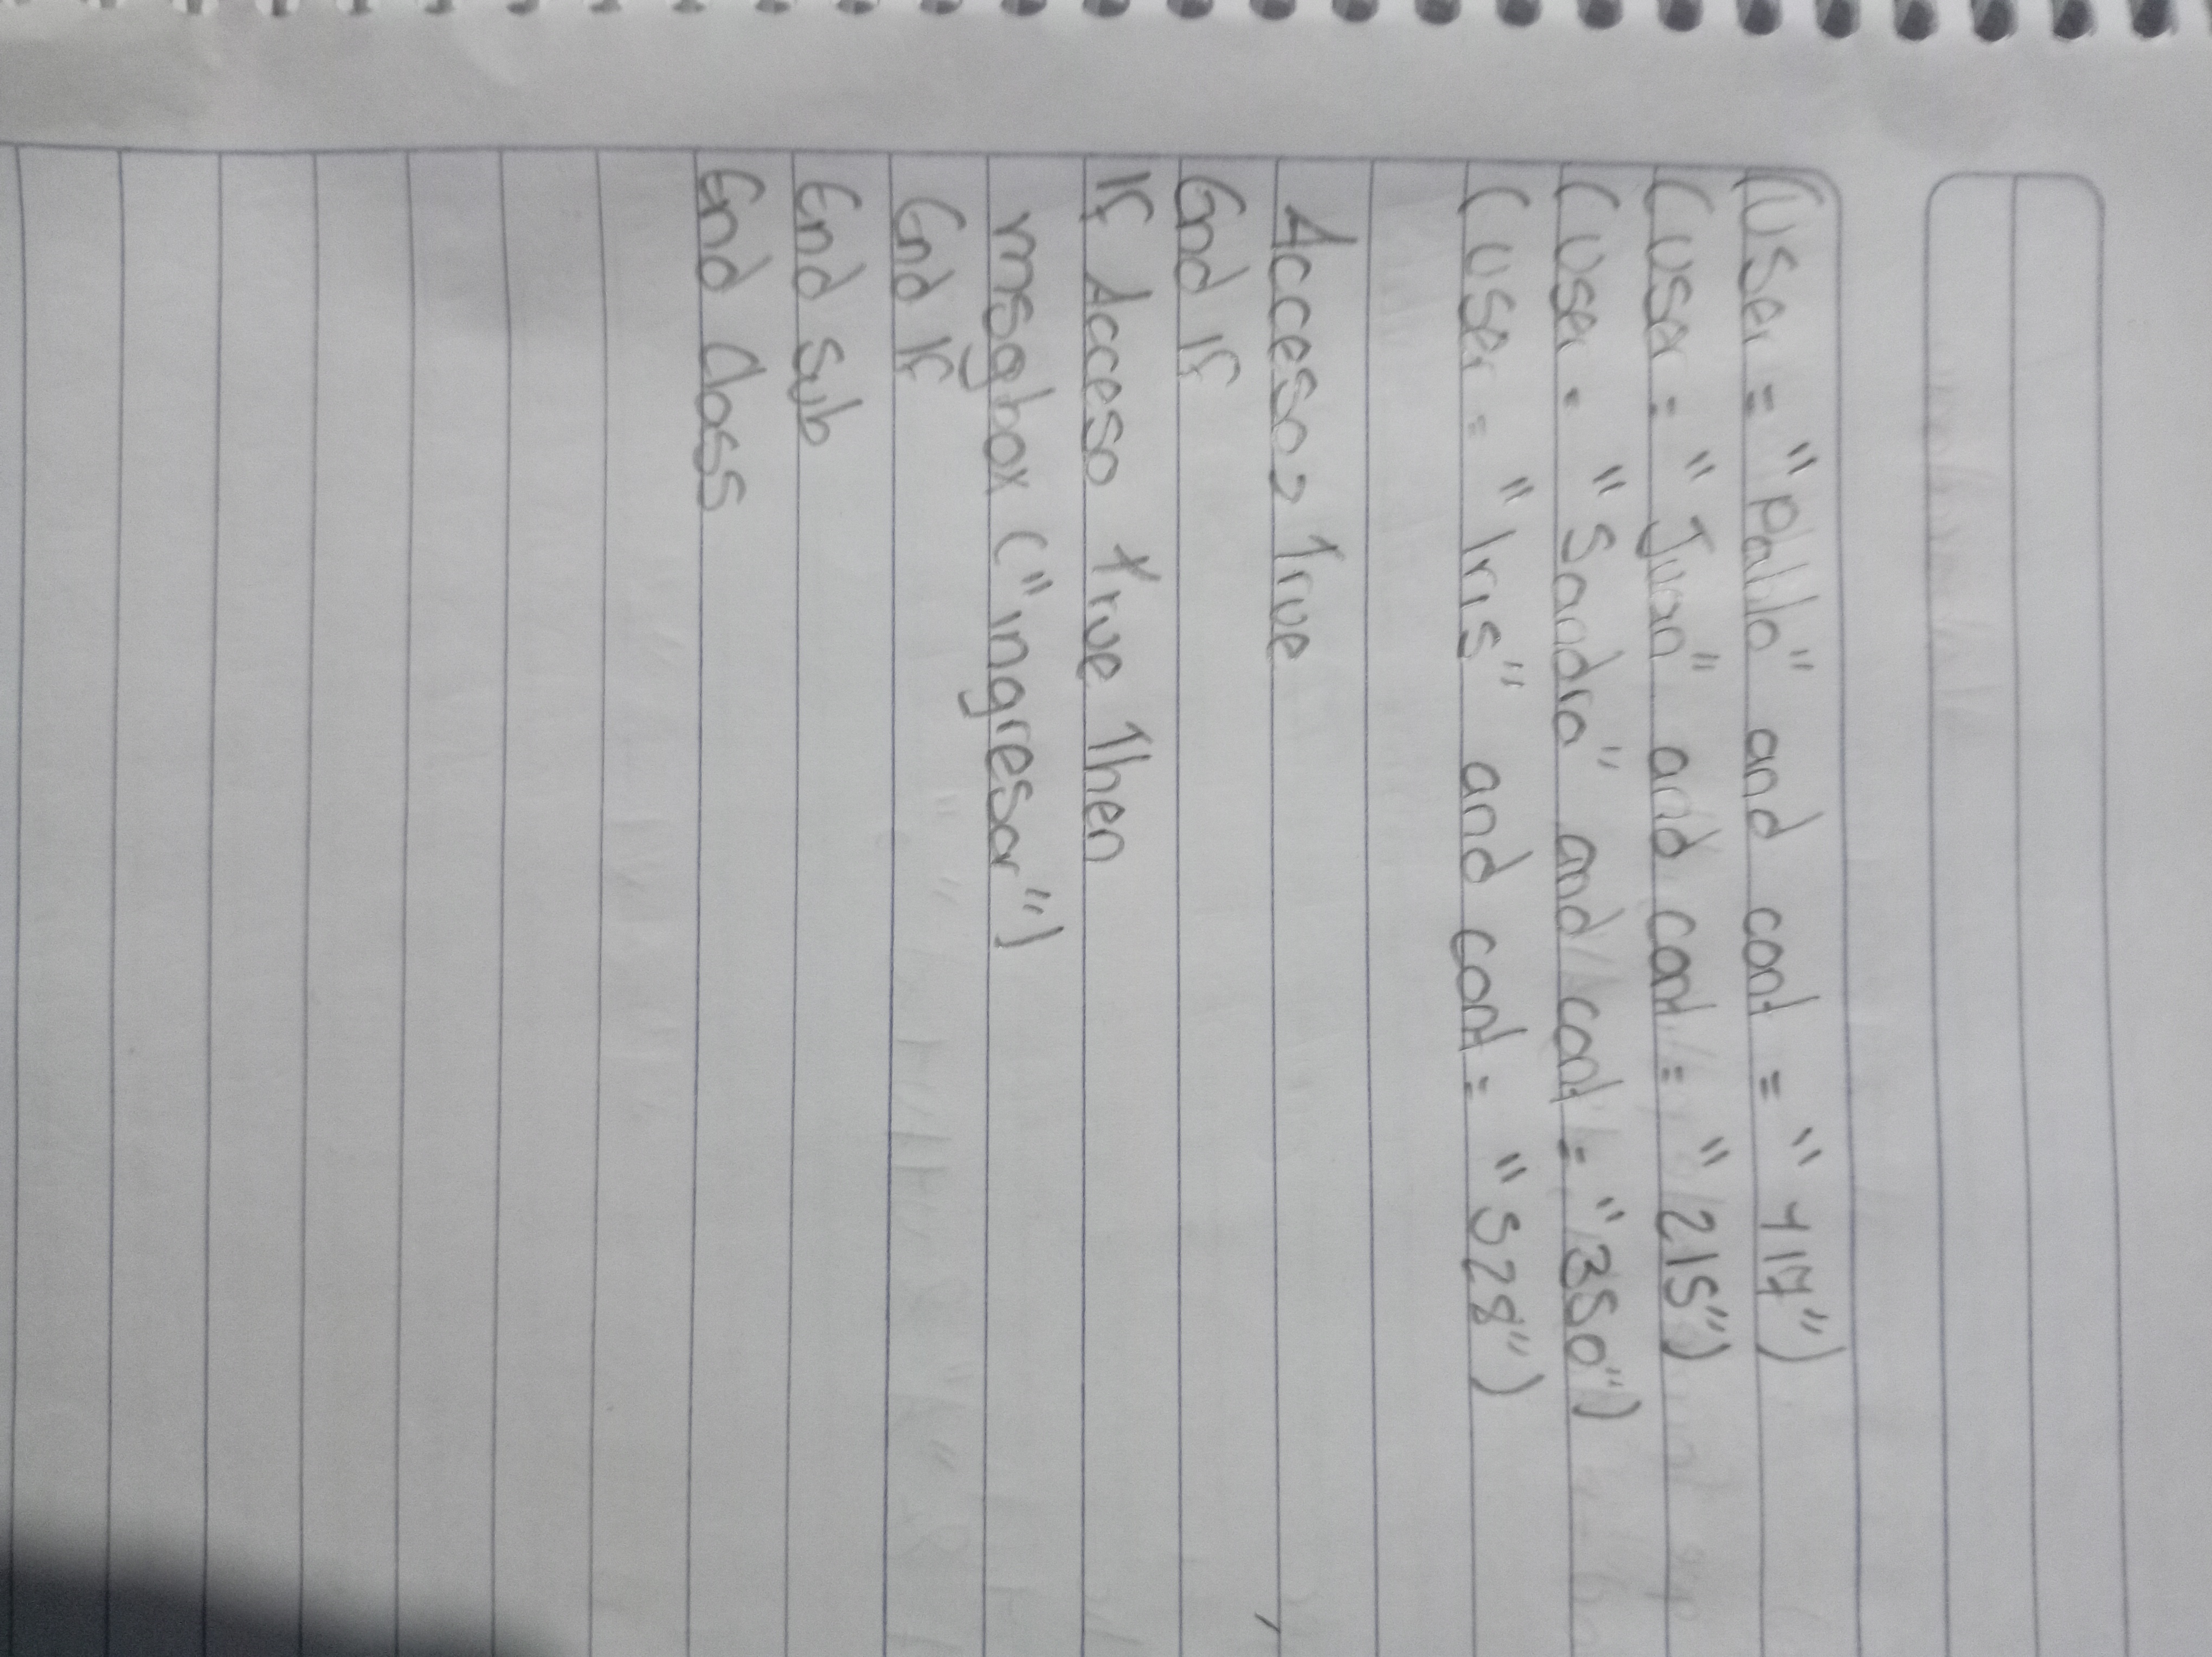 (User = "Pablo" and cont = "417")
(user = "Juan" and cont = "215")
(user = "Sandra" and cont = "350")
(user = "Iris" and cont = "528")
Acceso = True
End If
If Acceso true Then
msgbox ("ingresar")
End If
End Sub
End Class